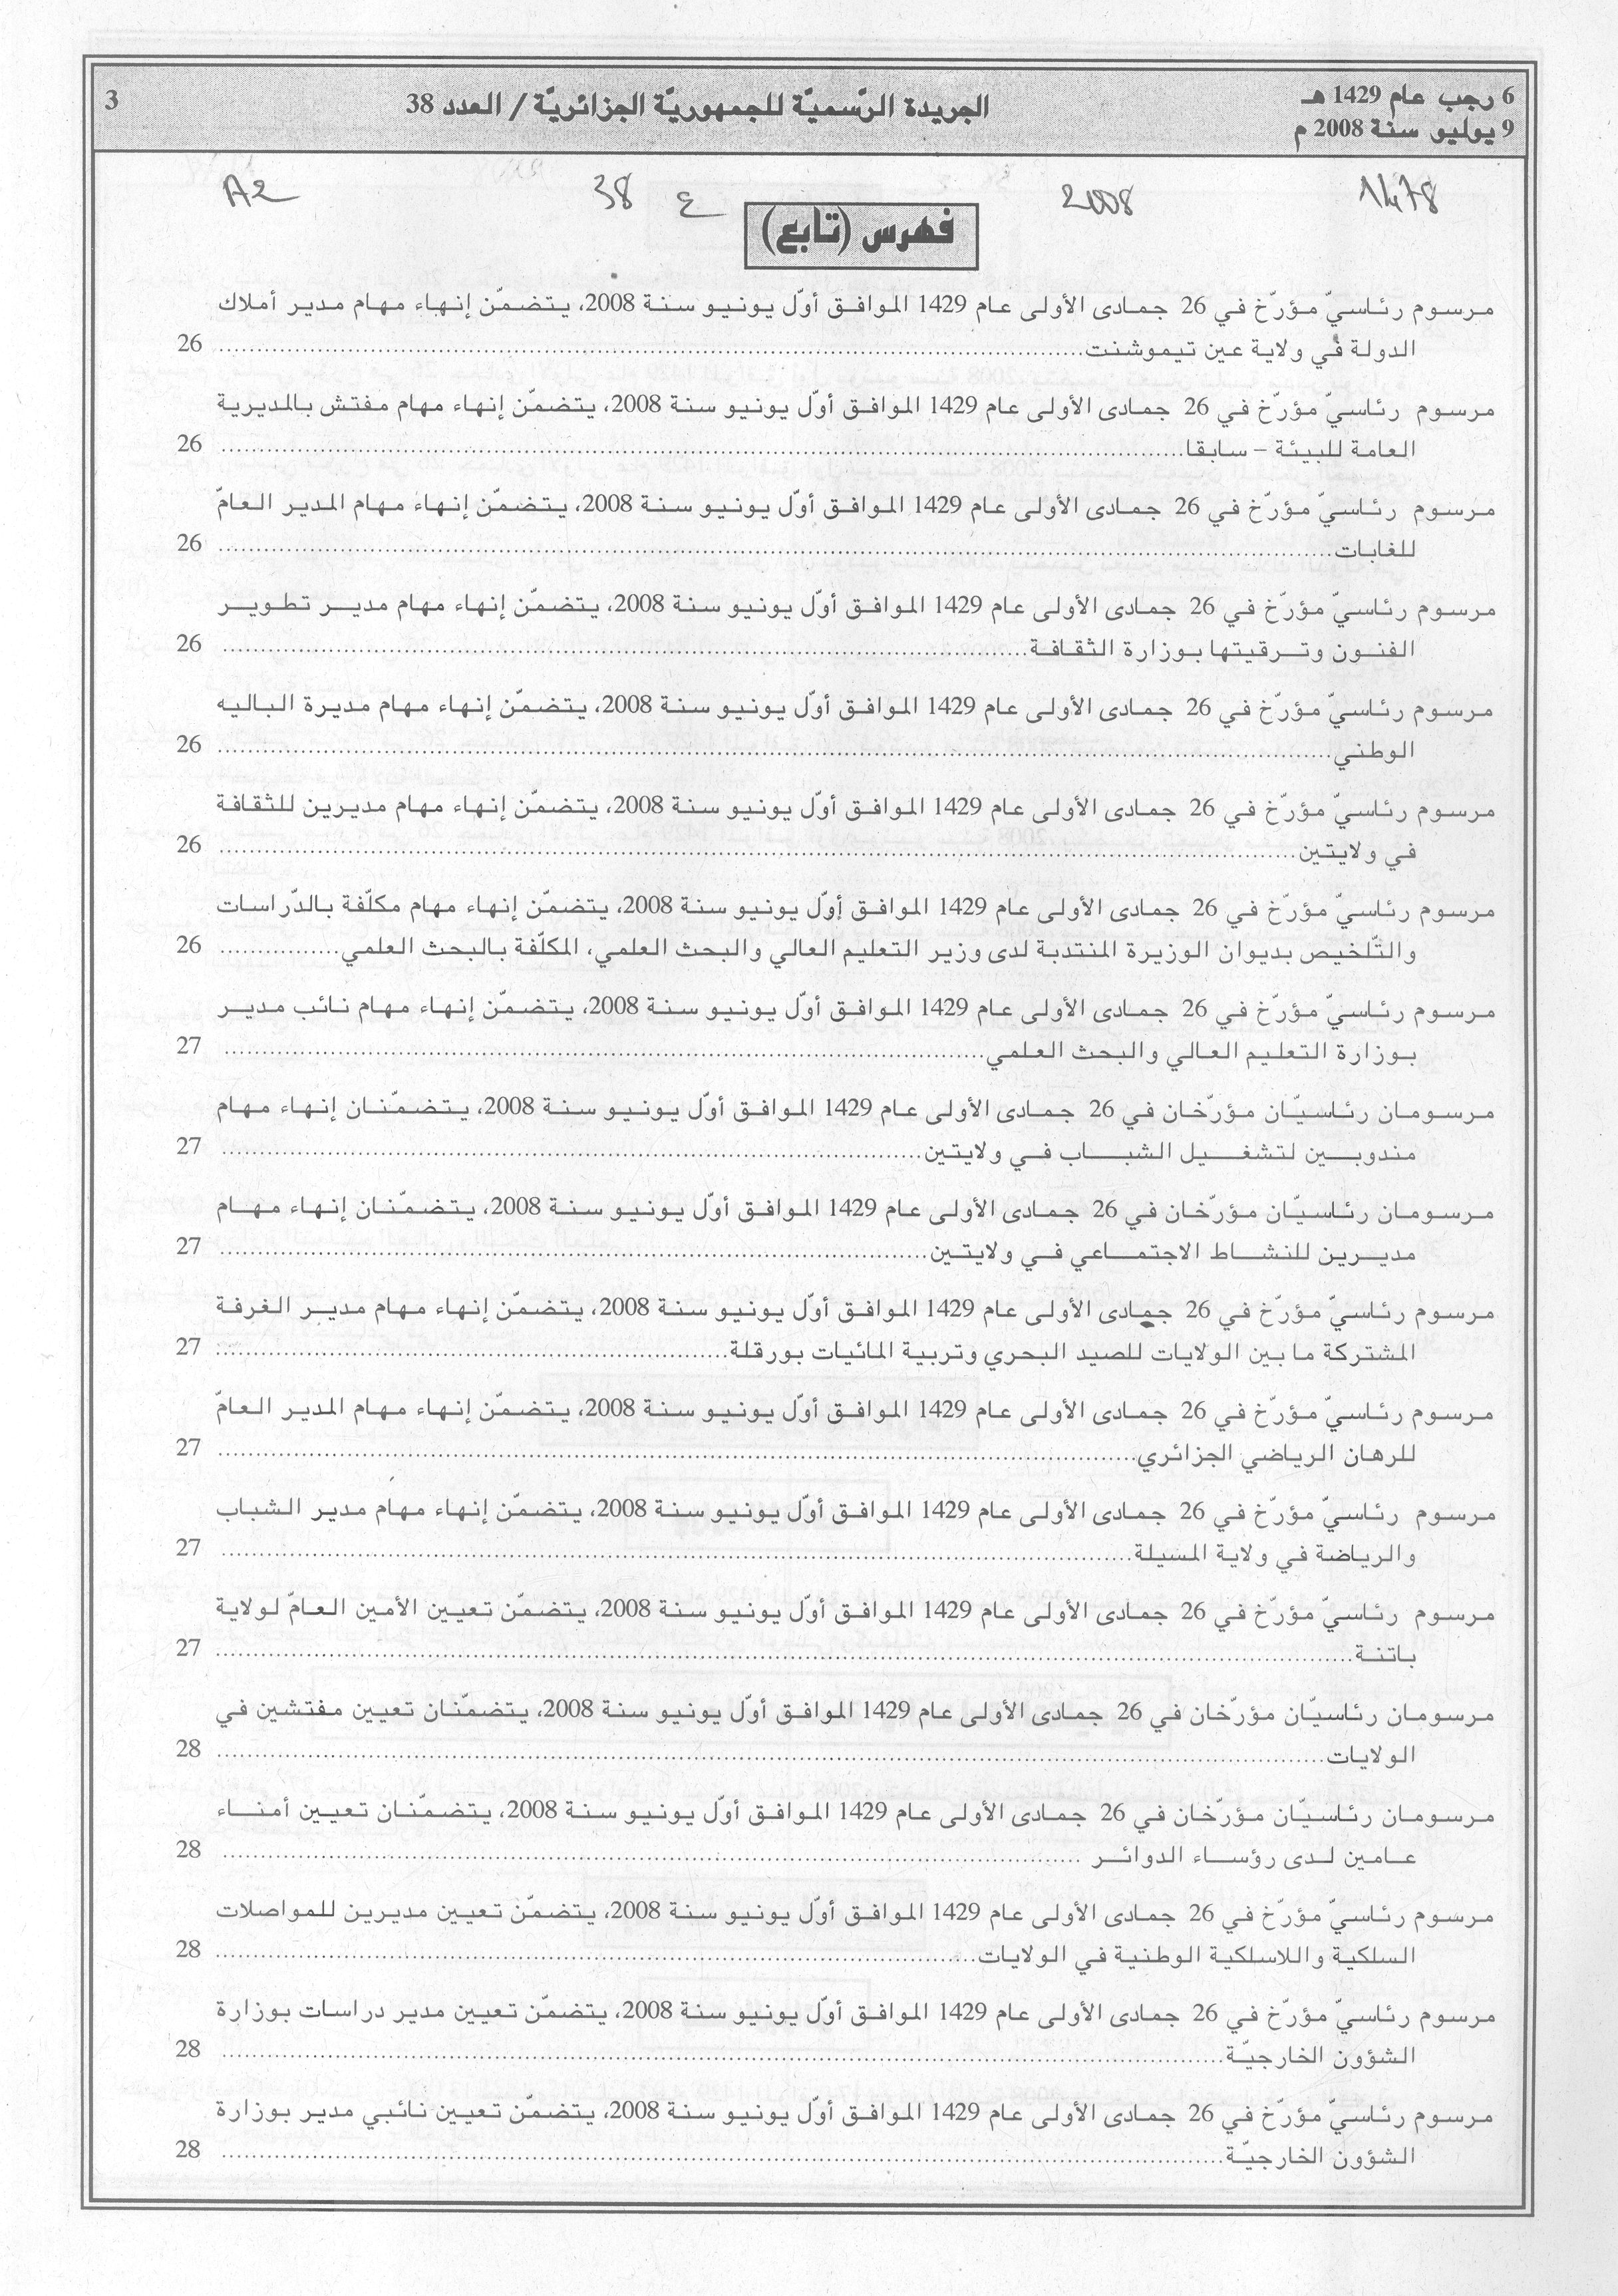 6 رجب عام 1429 هـ
9 يوليو سنة 2008 م
الجريدة الرّسميّة للجمهوريّة الجزائريّة / العدد 38
3
1478
2008
ع 38
A2
فهرس (تابع)
مرسوم رئاسيّ مؤرّخ في 26 جمادى الأولى عام 1429 الموافق أوّل يونيو سنة 2008، يتضمّن إنهاء مهام مدير أملاك
الدولة في ولاية عين تيموشنت 26
مرسوم رئاسيّ مؤرّخ في 26 جمادى الأولى عام 1429 الموافق أوّل يونيو سنة 2008، يتضمّن إنهاء مهام مفتش بالمديرية
العامة للبيئة – سابقا 26
مرسوم رئاسيّ مؤرّخ في 26 جمادى الأولى عام 1429 الموافق أوّل يونيو سنة 2008، يتضمّن إنهاء مهام المدير العامّ
للغابات 26
مرسوم رئاسيّ مؤرّخ في 26 جمادى الأولى عام 1429 الموافق أوّل يونيو سنة 2008، يتضمّن إنهاء مهام مدير تطوير
الفنون وترقيتها بوزارة الثقافة 26
مرسوم رئاسيّ مؤرّخ في 26 جمادى الأولى عام 1429 الموافق أوّل يونيو سنة 2008، يتضمّن إنهاء مهام مديرة الباليه
الوطني 26
مرسوم رئاسيّ مؤرّخ في 26 جمادى الأولى عام 1429 الموافق أوّل يونيو سنة 2008، يتضمّن إنهاء مهام مديرين للثقافة
في ولايتين 26
مرسوم رئاسيّ مؤرّخ في 26 جمادى الأولى عام 1429 الموافق أوّل يونيو سنة 2008، يتضمّن إنهاء مهام مكلّفة بالدّراسات
والتّلخيص بديوان الوزيرة المنتدبة لدى وزير التعليم العالي والبحث العلمي، المكلّفة بالبحث العلمي 26
مرسوم رئاسيّ مؤرّخ في 26 جمادى الأولى عام 1429 الموافق أوّل يونيو سنة 2008، يتضمّن إنهاء مهام نائب مدير
بوزارة التعليم العالي والبحث العلمي 27
مرسومان رئاسيّان مؤرّخان في 26 جمادى الأولى عام 1429 الموافق أوّل يونيو سنة 2008، يتضمّنان إنهاء مهام
مندوبين لتشغيل الشباب في ولايتين 27
مرسومان رئاسيّان مؤرّخان في 26 جمادى الأولى عام 1429 الموافق أوّل يونيو سنة 2008، يتضمّنان إنهاء مهام
مديرين للنشاط الاجتماعي في ولايتين 27
مرسوم رئاسيّ مؤرّخ في 26 جمادى الأولى عام 1429 الموافق أوّل يونيو سنة 2008، يتضمّن إنهاء مهام مدير الغرفة
المشتركة ما بين الولايات للصيد البحري وتربية المائيات بورقلة 27
مرسوم رئاسيّ مؤرّخ في 26 جمادى الأولى عام 1429 الموافق أوّل يونيو سنة 2008، يتضمّن إنهاء مهام المدير العامّ
للرهان الرياضي الجزائري 27
مرسوم رئاسيّ مؤرّخ في 26 جمادى الأولى عام 1429 الموافق أوّل يونيو سنة 2008، يتضمّن إنهاء مهام مدير الشباب
والرياضة في ولاية المسيلة 27
مرسوم رئاسيّ مؤرّخ في 26 جمادى الأولى عام 1429 الموافق أوّل يونيو سنة 2008، يتضمّن تعيين الأمين العامّ لولاية
باتنة 27
مرسومان رئاسيّان مؤرّخان في 26 جمادى الأولى عام 1429 الموافق أوّل يونيو سنة 2008، يتضمّنان تعيين مفتشين في
الولايات 28
مرسومان رئاسيّان مؤرّخان في 26 جمادى الأولى عام 1429 الموافق أوّل يونيو سنة 2008، يتضمّنان تعيين أمناء
عامين لدى رؤساء الدوائر 28
مرسوم رئاسيّ مؤرّخ في 26 جمادى الأولى عام 1429 الموافق أوّل يونيو سنة 2008، يتضمّن تعيين مديرين للمواصلات
السلكية واللاسلكية الوطنية في الولايات 28
مرسوم رئاسيّ مؤرّخ في 26 جمادى الأولى عام 1429 الموافق أوّل يونيو سنة 2008، يتضمّن تعيين مدير دراسات بوزارة
الشؤون الخارجيّة 28
مرسوم رئاسيّ مؤرّخ في 26 جمادى الأولى عام 1429 الموافق أوّل يونيو سنة 2008، يتضمّن تعيين نائبي مدير بوزارة
الشؤون الخارجيّة 28